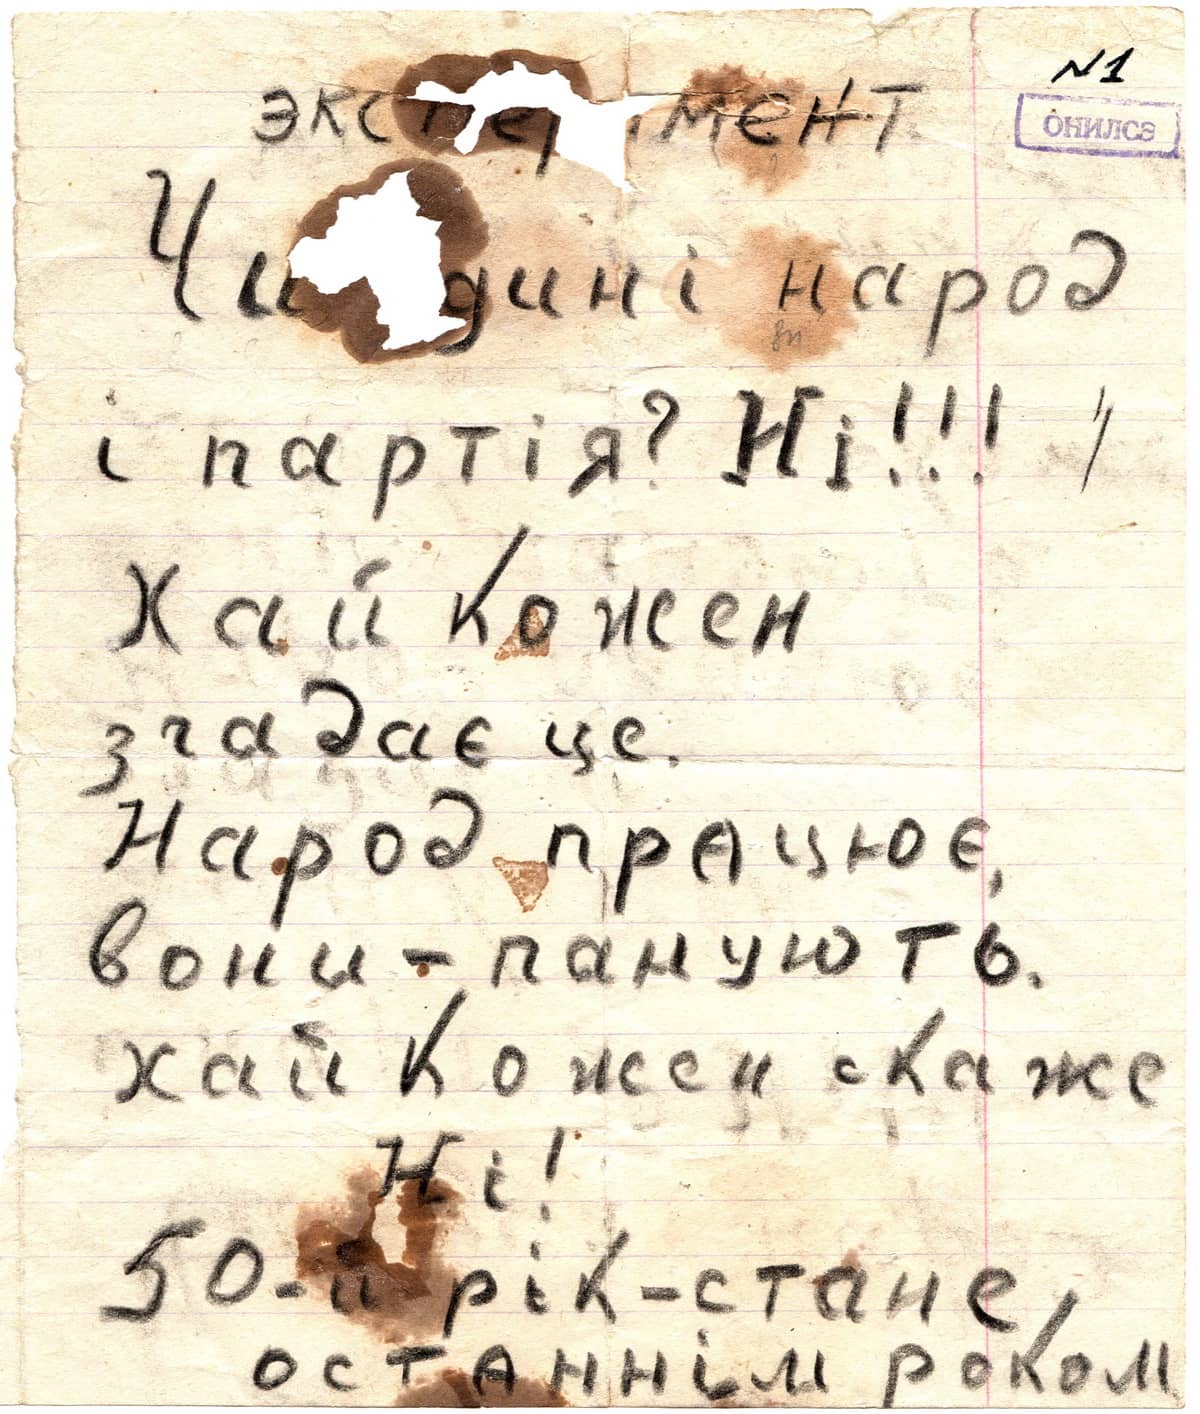 N1
ОНИЛСЭ
эксперимент
Чи єдині народ
і партія? Ні!!!
Хай кожен
згадає це.
Народ працює,
вони – панують.
хай кожен скаже
Ні!
50-й рік – стане
останнім роком